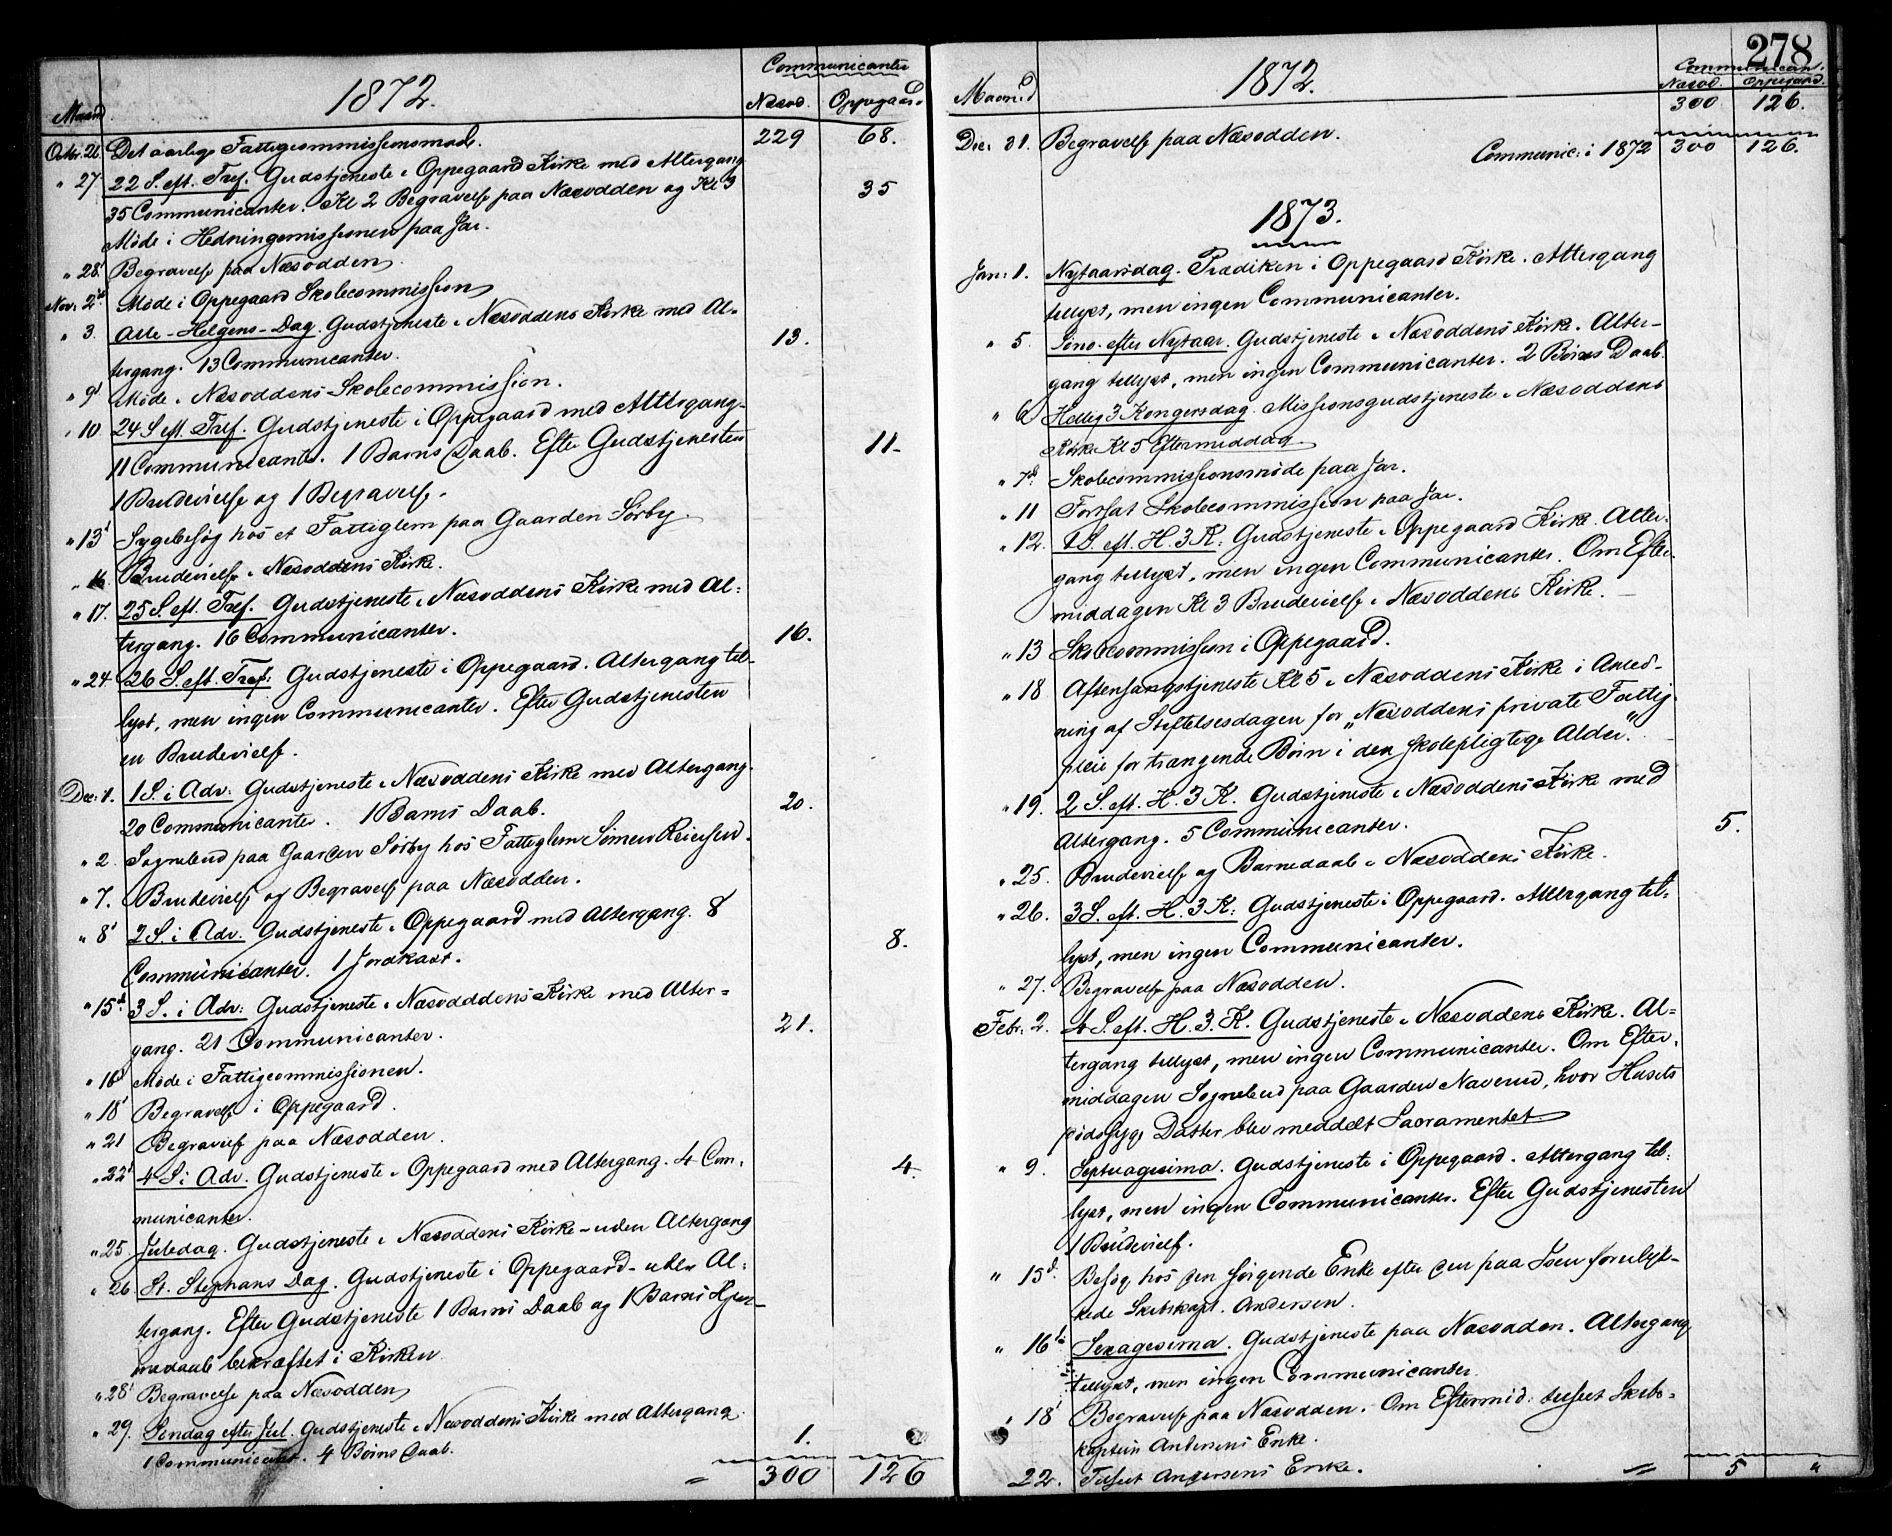 278
1872.
Communicanter
Maaned
Næsod. Oppegaard
Octbr. 26 Det aarlige Fattigcommissionsmøde. 229 68.
" 27. 22 S. eft. Tref. Gudstjeneste i Oppegaard Kirke med Altergang
35 Communicanter. Kl 2 Begravelse paa Næsodden og Kl 3 35
Møde i Hedningemissionen paa Jar.
" 28. Begravelse paa Næsodden
Nov: 2d Møde i Oppegaard Skolecommission
" 3. Alle-Helgens-Dag. Gudstjeneste i Næsoddens Kirke med Al=
tergang. 13 Communicanter. 13.
" 9d Møde i Næsoddens Skolecommission.
" 10 24 S eft. Tref. Gudstjeneste i Oppegaard med Altergang
11 Communicanter. 1 Barns Daab. Efter Gudstjenesten 11.
1 Brudevielse og 1 Begravelse.
" 13d Sygebesøg hos et Fattiglem paa Gaarden Sørby.
" 16 Brudevielse i Næsoddens Kirke.
" 17. 25 S. eft. Tref. Gudstjeneste i Næsoddens Kirke med Al=
tergang. 16 Communicanter. 16.
" 24 26 S. eft. Tref: Gudstjeneste i Oppegaard. Altergang til-
lyst, men ingen Communicanter. Efter Gudstjenesten
en Brudevielse.
Dec: 1. 1 S. i Adv: Gudstjeneste i Næsoddens Kirke med Altergang.
20 Communicanter. 1 Barns Daab. 20.
" 2. Sognebud paa Gaarden Sørby hos Fattiglem Simen Reiersen.
" 7. Brudevielse og Begravelse paa Næsodden.
" 8d 2 S. i Adv. Gudstjeneste i Oppegaard med Altergang. 8
Communicanter. 1 Jordkast. 8.
" 15d 3 S. i Adv: Gudstjeneste i Næsodddens Kirke med Alter=
gang. 21 Communicanter. 21.
" 16d Møde i Fattigcommissionen.
" 18d Begravelse i Oppegaard.
" 21 Begravelse paa Næsodden.
" 22d 4 S i Adv. Gudstjeneste i Oppegaard med Altergang. 4 Com- 4.
municanter.
" 25. Juledag. Gudstjeneste i Næsoddens Kirke - uden Altergang
" 26 St. Stephans Dag. Gudstjeneste i Oppegaard - uden Al-
tergang. Efter Gudstjeneste 1 Barns Daab og 1 Barns Hjem-
medaab bekræftet i Kirken
" 28d Begravelse paa Næsodden
" 29. Søndag efter Jul. Gudstjeneste i Næsoddens Kirke med Altergang.
1 Communicant. 4 Børns Daab. 1.
300 126
1872.
Communican.
Maaned
Næsod. Oppegaard.
300 126.
Dec: 31. Begravelse paa Næsodden.
Communic: i 1872 300 126.
1873.
Jan: 1. Nytaarsdag. Prædiken i Oppegaard Kirke. Altergang
tillyst, men ingen Communicanter.
" 5. Sønd. efter Nytaar. Gudstjeneste i Næsoddens Kirke. Alter-
gang tillyst, men ingen Communicanter. 2 Børns Daab.
" 6 Hellig 3 Kongersdag. Missionsgudstjeneste i Næsoddens
Kirke Kl 5 Eftermiddag
" 7d Skolecommissionsmøde paa Jar.
" 11 Fortsat Skolecommission paa Jar.
" 12. 1 S. eft. H. 3 K: Gudstjeneste i Oppegaard Kirke. Alter-
gang tillyst, men ingen Communicanter. Om Efter-
middagen Kl 3 Brudevielse i Næsoddens Kirke.
" 13 Skolecommission i Oppegaard.
" 18 Aftensangstjeneste Kl 5 i Næsoddens Kirke i Anled-
ning af Stiftelsesdagen for „Næsoddens private Fattig-
pleie for trængende Børn i den skolepligtige Alder."
" 19. 2 S. eft. H. 3 K. Gudstjeneste i Næsoddens Kirke med
Altergang. 5 Communicanter. 5.
" 25. Brudevielse og Barnedaab i Næsoddens Kirke.
" 26. 3 S. eft. H. 3 K: Gudstjeneste i Oppegaard. Altergang til-
lyst, men ingen Communicanter.
" 27. Begravelse paa Næsodden.
Febr: 2. 4 S. eft. H. 3. K. Gudstjeneste i Næsoddens Kirke. Al=
tergang tillyst, men ingen Communicanter. Om Efter-
middagen Sognebud paa Gaarden Naverud, hvor Husets
sydsyge Datter blev meddelt Sacramentet
" 9. Septuagesima. Gudstjeneste i Oppegaard. Altergang til-
lyst, men ingen Communicanter. Efter Gudstjenesten
1 Brudevielse.
" 15d. Besøg hos den sørgende Enke efter den paa Søen forulyk-
kede Skibskapt. Andersen.
" 16d Sexagesima. Gudstjeneste paa Næsodden. Altergang
tillyst, men ingen Communicanter.
" 18d Begravelse paa Næsodden. Om Eftermid: tilseet Skibs-
kaptein Andersens Enke.
22. Tilseet Andersens Enke. 5 "